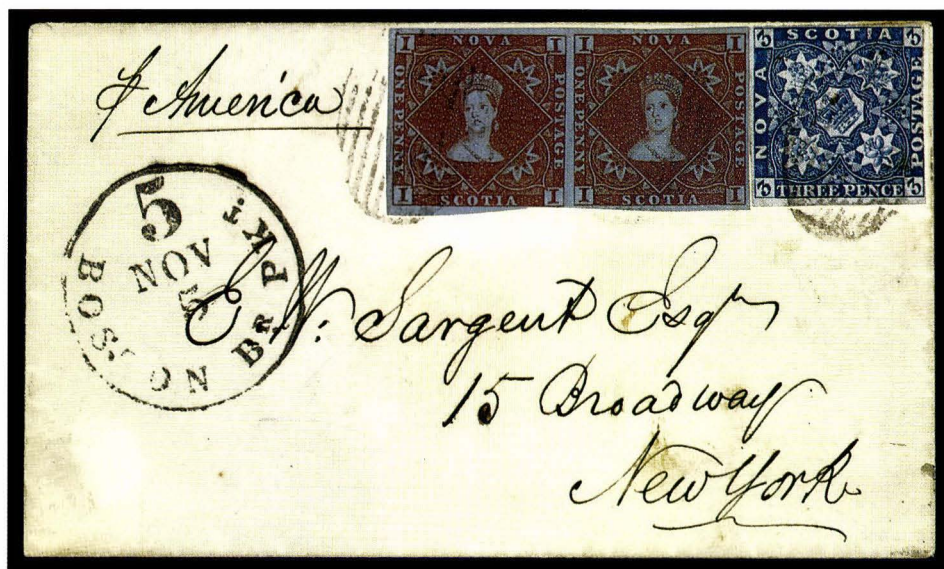 p America
I NOVA I
ONE PENNY
POSTAGE
I SCOTIA I
I NOVA I
ONE PENNY
POSTAGE
I SCOTIA I
3 SCOTIA 3
NOVA
POSTAGE
3 THREE PENCE 3
5
NOV
5
BOSTON BR. PKT
Sargent Esqr
15 Broadway
New York